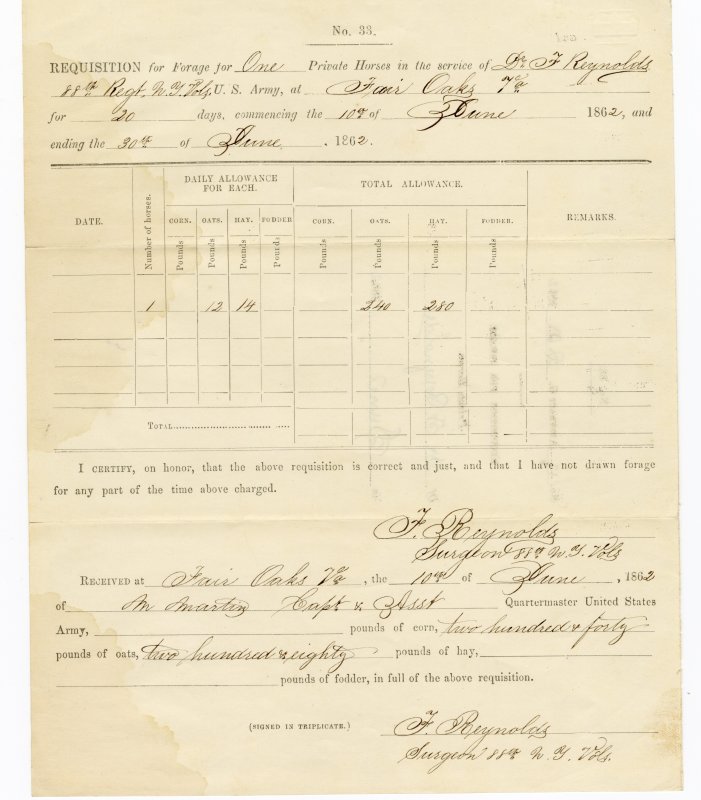 No. 33.
REQUISITION for Forage for One Private Horses in the service of Dr. F Reynolds
88th Regt. N.Y. Vols, U. S. Army, at Fair Oaks Va
for 20 days, commencing the 10th of June 1862, and
ending the 30th of June, 1862.
DAILY ALLOWANCE FOR EACH. TOTAL ALLOWANCE.
DATE. Number of horses. CORN. OATS. HAY. FODDER CORN. OATS. HAY. FODDER. REMARKS.
Pounds Pounds Pounds Pounds Pounds Pounds Pounds Pounds
1 12 14 240 280
TOTAL
I CERTIFY, on honor, that the above requisition is correct and just, and that I have not drawn forage
for any part of the time above charged.
F. Reynolds
Surgeon 88th N.Y. Vols
RECEIVED at Fair Oaks Va, the 10th of June, 1862
of M Martin Capt & Asst Quartermaster United States
Army, pounds of corn, two hundred & forty
pounds of oats, two hundred & eighty pounds of hay,
pounds of fodder, in full of the above requisition.
(SIGNED IN TRIPLICATE.)
F. Reynolds
Surgeon 88th N.Y. Vols.